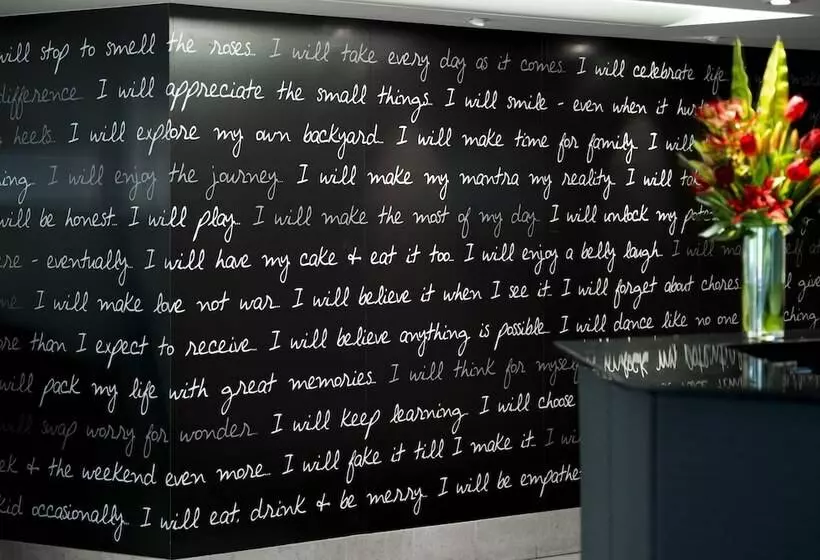 will stop to smell the roses. I will take every day as it comes. I will celebrate life
difference. I will appreciate the small things. I will smile - even when it hurts
heels. I will explore my own backyard. I will make time for family. I will
I will enjoy the journey. I will make my mantra my reality. I will
will be honest. I will play. I will make the most of my day. I will unlock my
- eventually. I will have my cake & eat it too. I will enjoy a belly laugh. I will
I will make love not war. I will believe it when I see it. I will forget about chores.
than I expect to receive. I will believe anything is possible. I will dance like no one
will pack my life with great memories. I will think for myself
will swap worry for wonder. I will keep learning. I will choose
& the weekend even more. I will fake it till I make it. I
kid occasionally. I will eat, drink & be merry. I will be